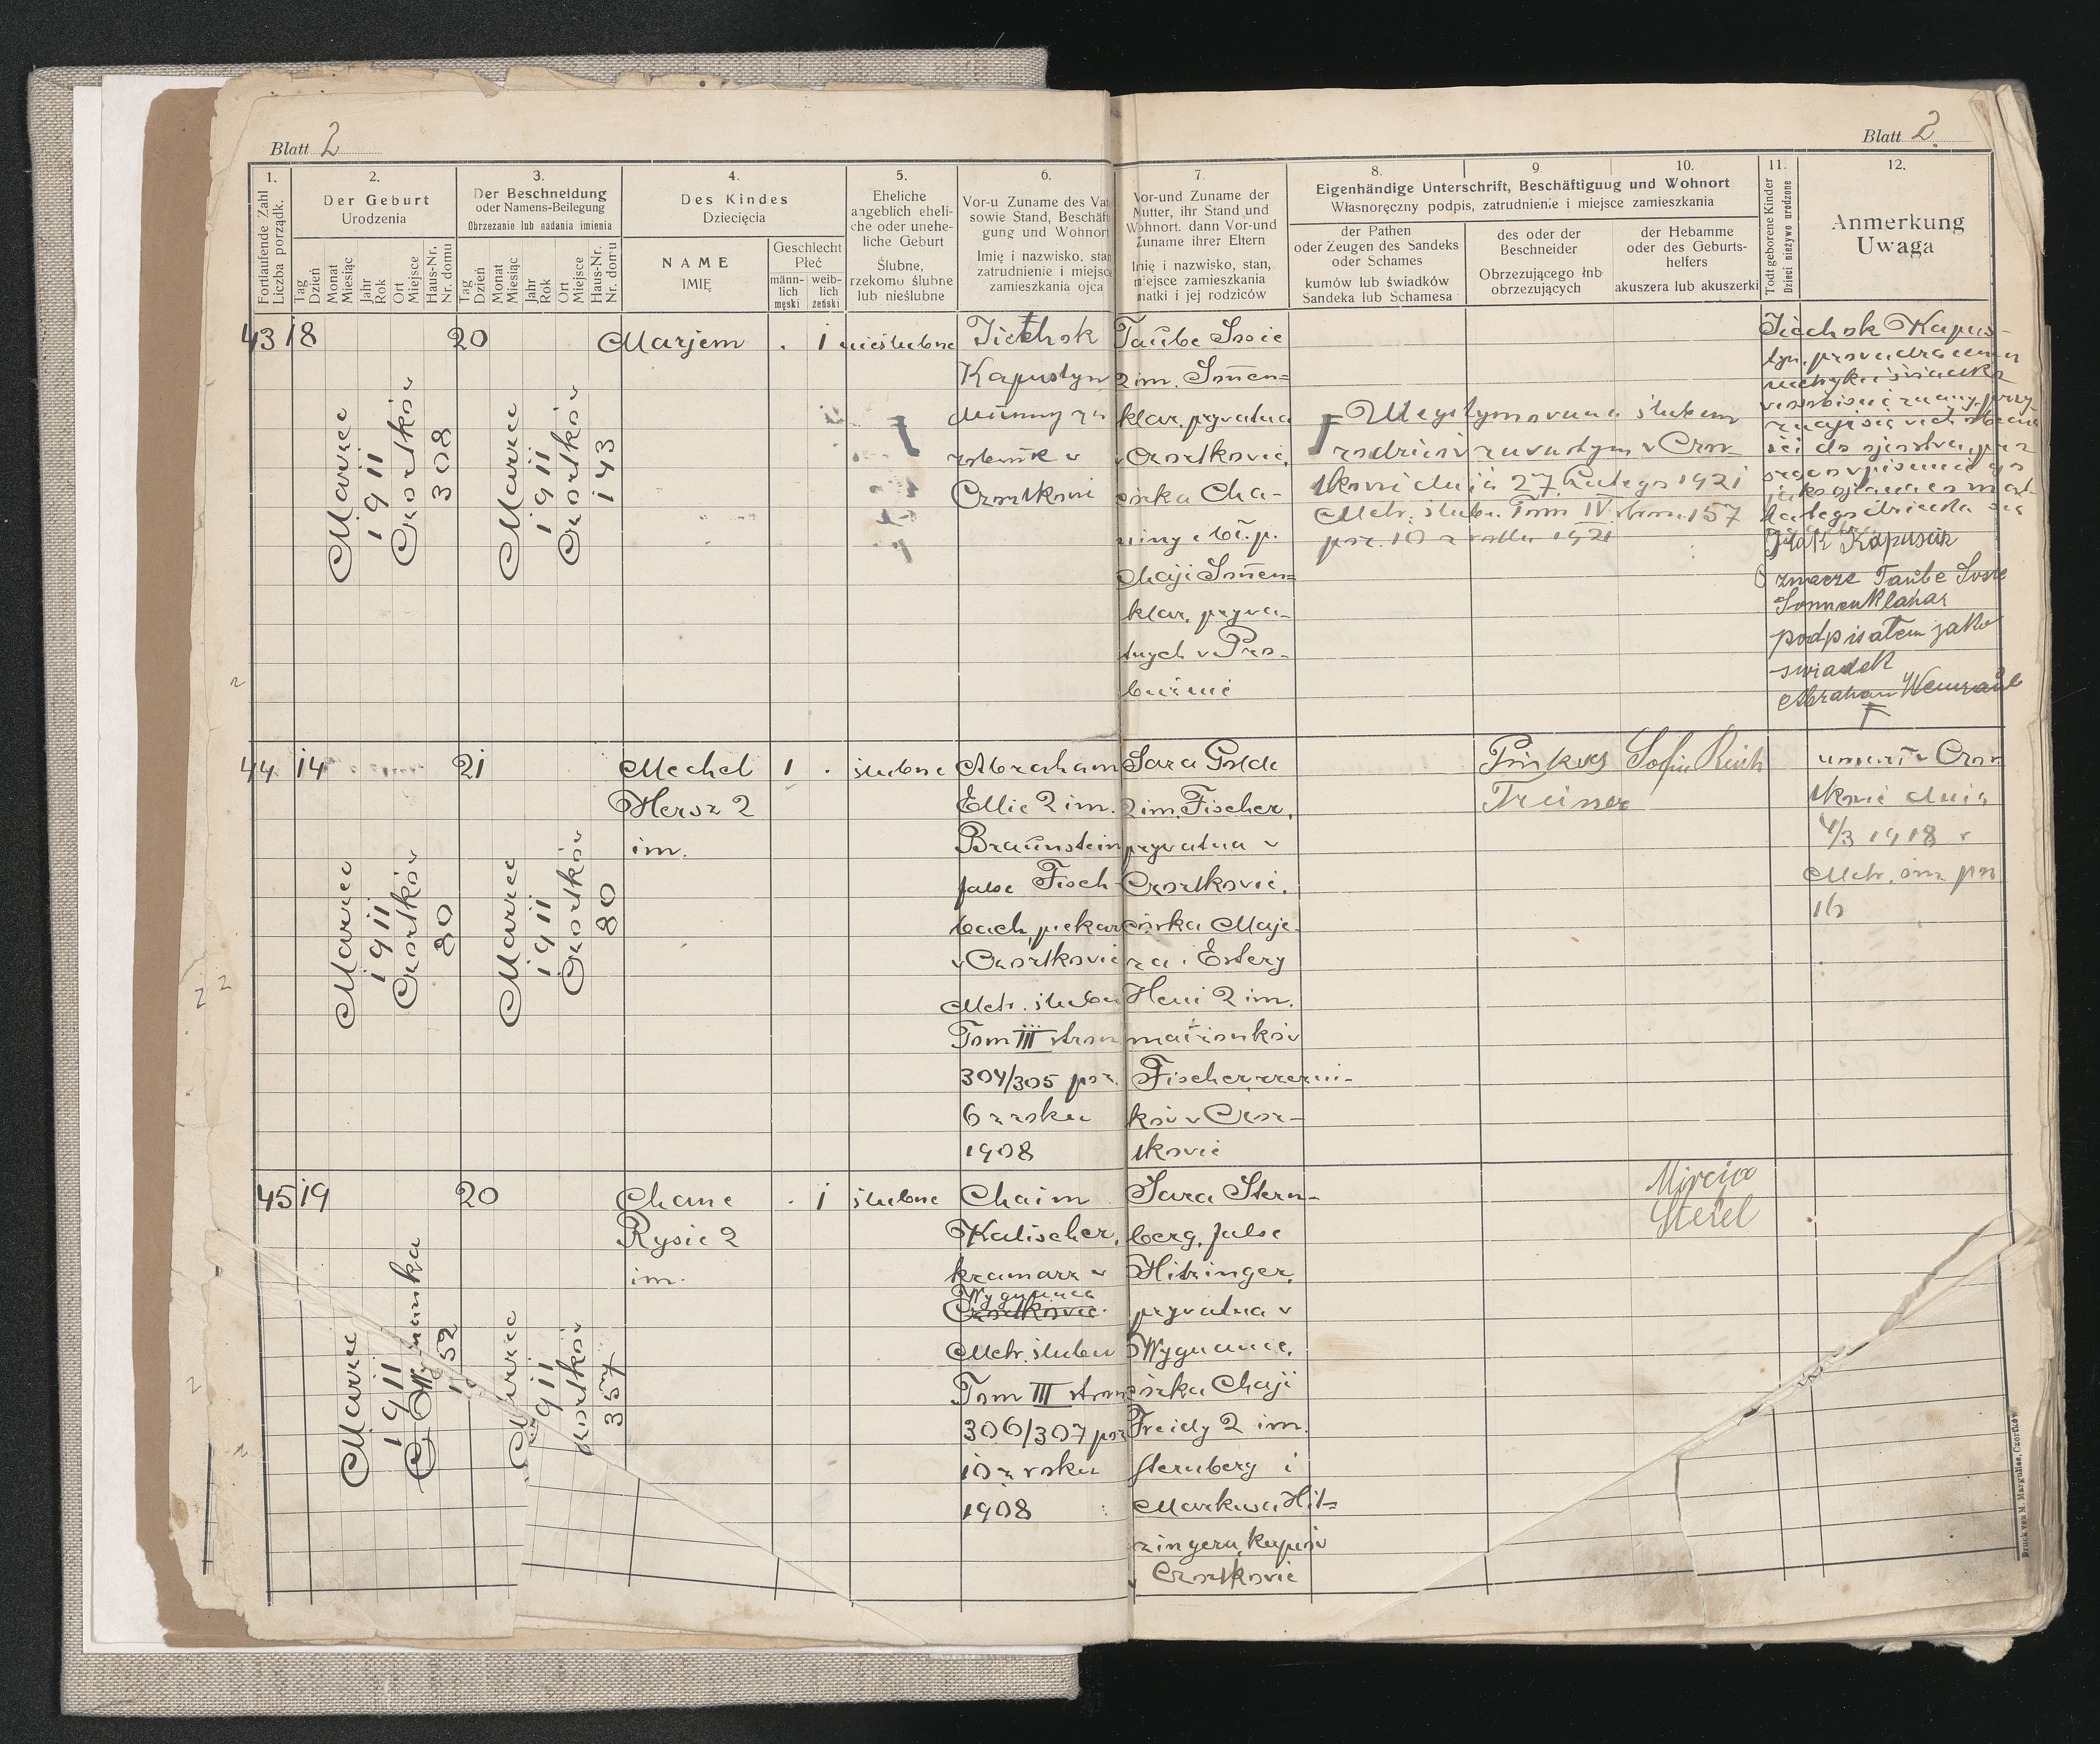 Blatt 2
Blatt 2
1.
Fortlaufende Zahl
Liczba porządk.
2.
Der Geburt
Urodzenia
Tag
Dzień
Monat
Miesiąc
Jahr
Rok
Ort
Miejsce
Haus-Nr.
Nr. domu
3.
Der Beschneidung
oder Namens-Beilegung
Obrzezanie lub nadania imienia
Tag
Dzień
Monat
Miesiąc
Jahr
Rok
Ort
Miejsce
Haus-Nr.
Nr. domu
4.
Des Kindes
Dziecięcia
NAME
IMIĘ
Geschlecht
Płeć
männ-
lich
męski
weib-
lich
żeński
5.
Eheliche
angeblich eheli-
che oder unehe-
liche Geburt
Ślubne,
rzekomo ślubne
lub nieślubne
6.
Vor-u Zuname des Vat
sowie Stand, Beschäft
gung und Wohnort
Imię i nazwisko, stan
zatrudnienie i miejsce
zamieszkania ojca
7.
Vor-und Zuname der
Mutter, ihr Stand und
Wohnort. dann Vor-und
Zuname ihrer Eltern
Imię i nazwisko, stan,
miejsce zamieszkania
matki i jej rodziców
8.
9.
10.
Eigenhändige Unterschrift, Beschäftiguug und Wohnort
Własnoręczny podpis, zatrudnienie i miejsce zamieszkania
der Pathen
oder Zeugen des Sandeks
oder Schames
kumów lub świadków
Sandeka lub Schamesa
des oder der
Beschneider
Obrzezującego łnb
obrzezujących
der Hebamme
oder des Geburts-
helfers
akuszera lub akuszerki
11.
Todt geborene Kinder
Dzieci nieżywo urodzone
12.
Anmerkung
Uwaga
43
18
Marzec
1911
Czortków
308
20
Marzec
1911
Czortków
143
Marjem
. 1
nieślubne
Kapustyn
w
Czortkowi
Taube Sosie
2 im. Sonen=
klar, prywatna
w Czortkowie,
córka Cha-
Chaji Sonen=
klar, prywa-
tnych w Pro-
bużnie
Ulegitymowana ślubem
rodziców zawartym w Czor-
tkowie dnia 27 Lutego 1921
Metr. ślub. Tom IV stron. 157
poz. 10 z roku 1921
Kapus-
tyn
Taube Sosie
Sonnenklahar
podpisałem jako
swiadek
Abraham
44
14
Marzec
1911
Czortków
80
21
Marzec
1911
Czortków
80
Mechel
Hersz 2
im.
1 .
ślubne
Abraham
Ellie 2 im.
Braunstein
false Fisch
bach, piekarz
w Czortkowie
Metr. ślubu
Tom III stron
304/305 poz.
6 z roku
1908
Sara Golde
2 im. Fischer,
prywatna w
Czortkowie,
córka Maje-
ra i Estery
Heni 2 im.
małżonków
Fischer, rzeźni-
ków w Czor-
tkowie
Pinkas
Sofie Reich
umarł w Czor
tkowie dnia
4/3 1918 r
Metr. śm. poz
16
45
19
Marzec
1911
Wygnanka
152
20
Marzec
1911
Czortków
357
Chane
Rysie 2
im.
. 1
ślubne
Chaim
Kalischer,
kramarz w
Wygnance
Czortkowie.
Metr. ślubu
Tom III stron
306/307 poz
10 z roku
1908
Sara Stern-
berg, false
Hitzinger,
prywatna w
Wygnance,
córka Chaji
Freidy 2 im.
Sternberg i
Markusa Hit=
zingera, kupców
w Czortkowie
Sterel
Druck von M. Margulies, Czortków